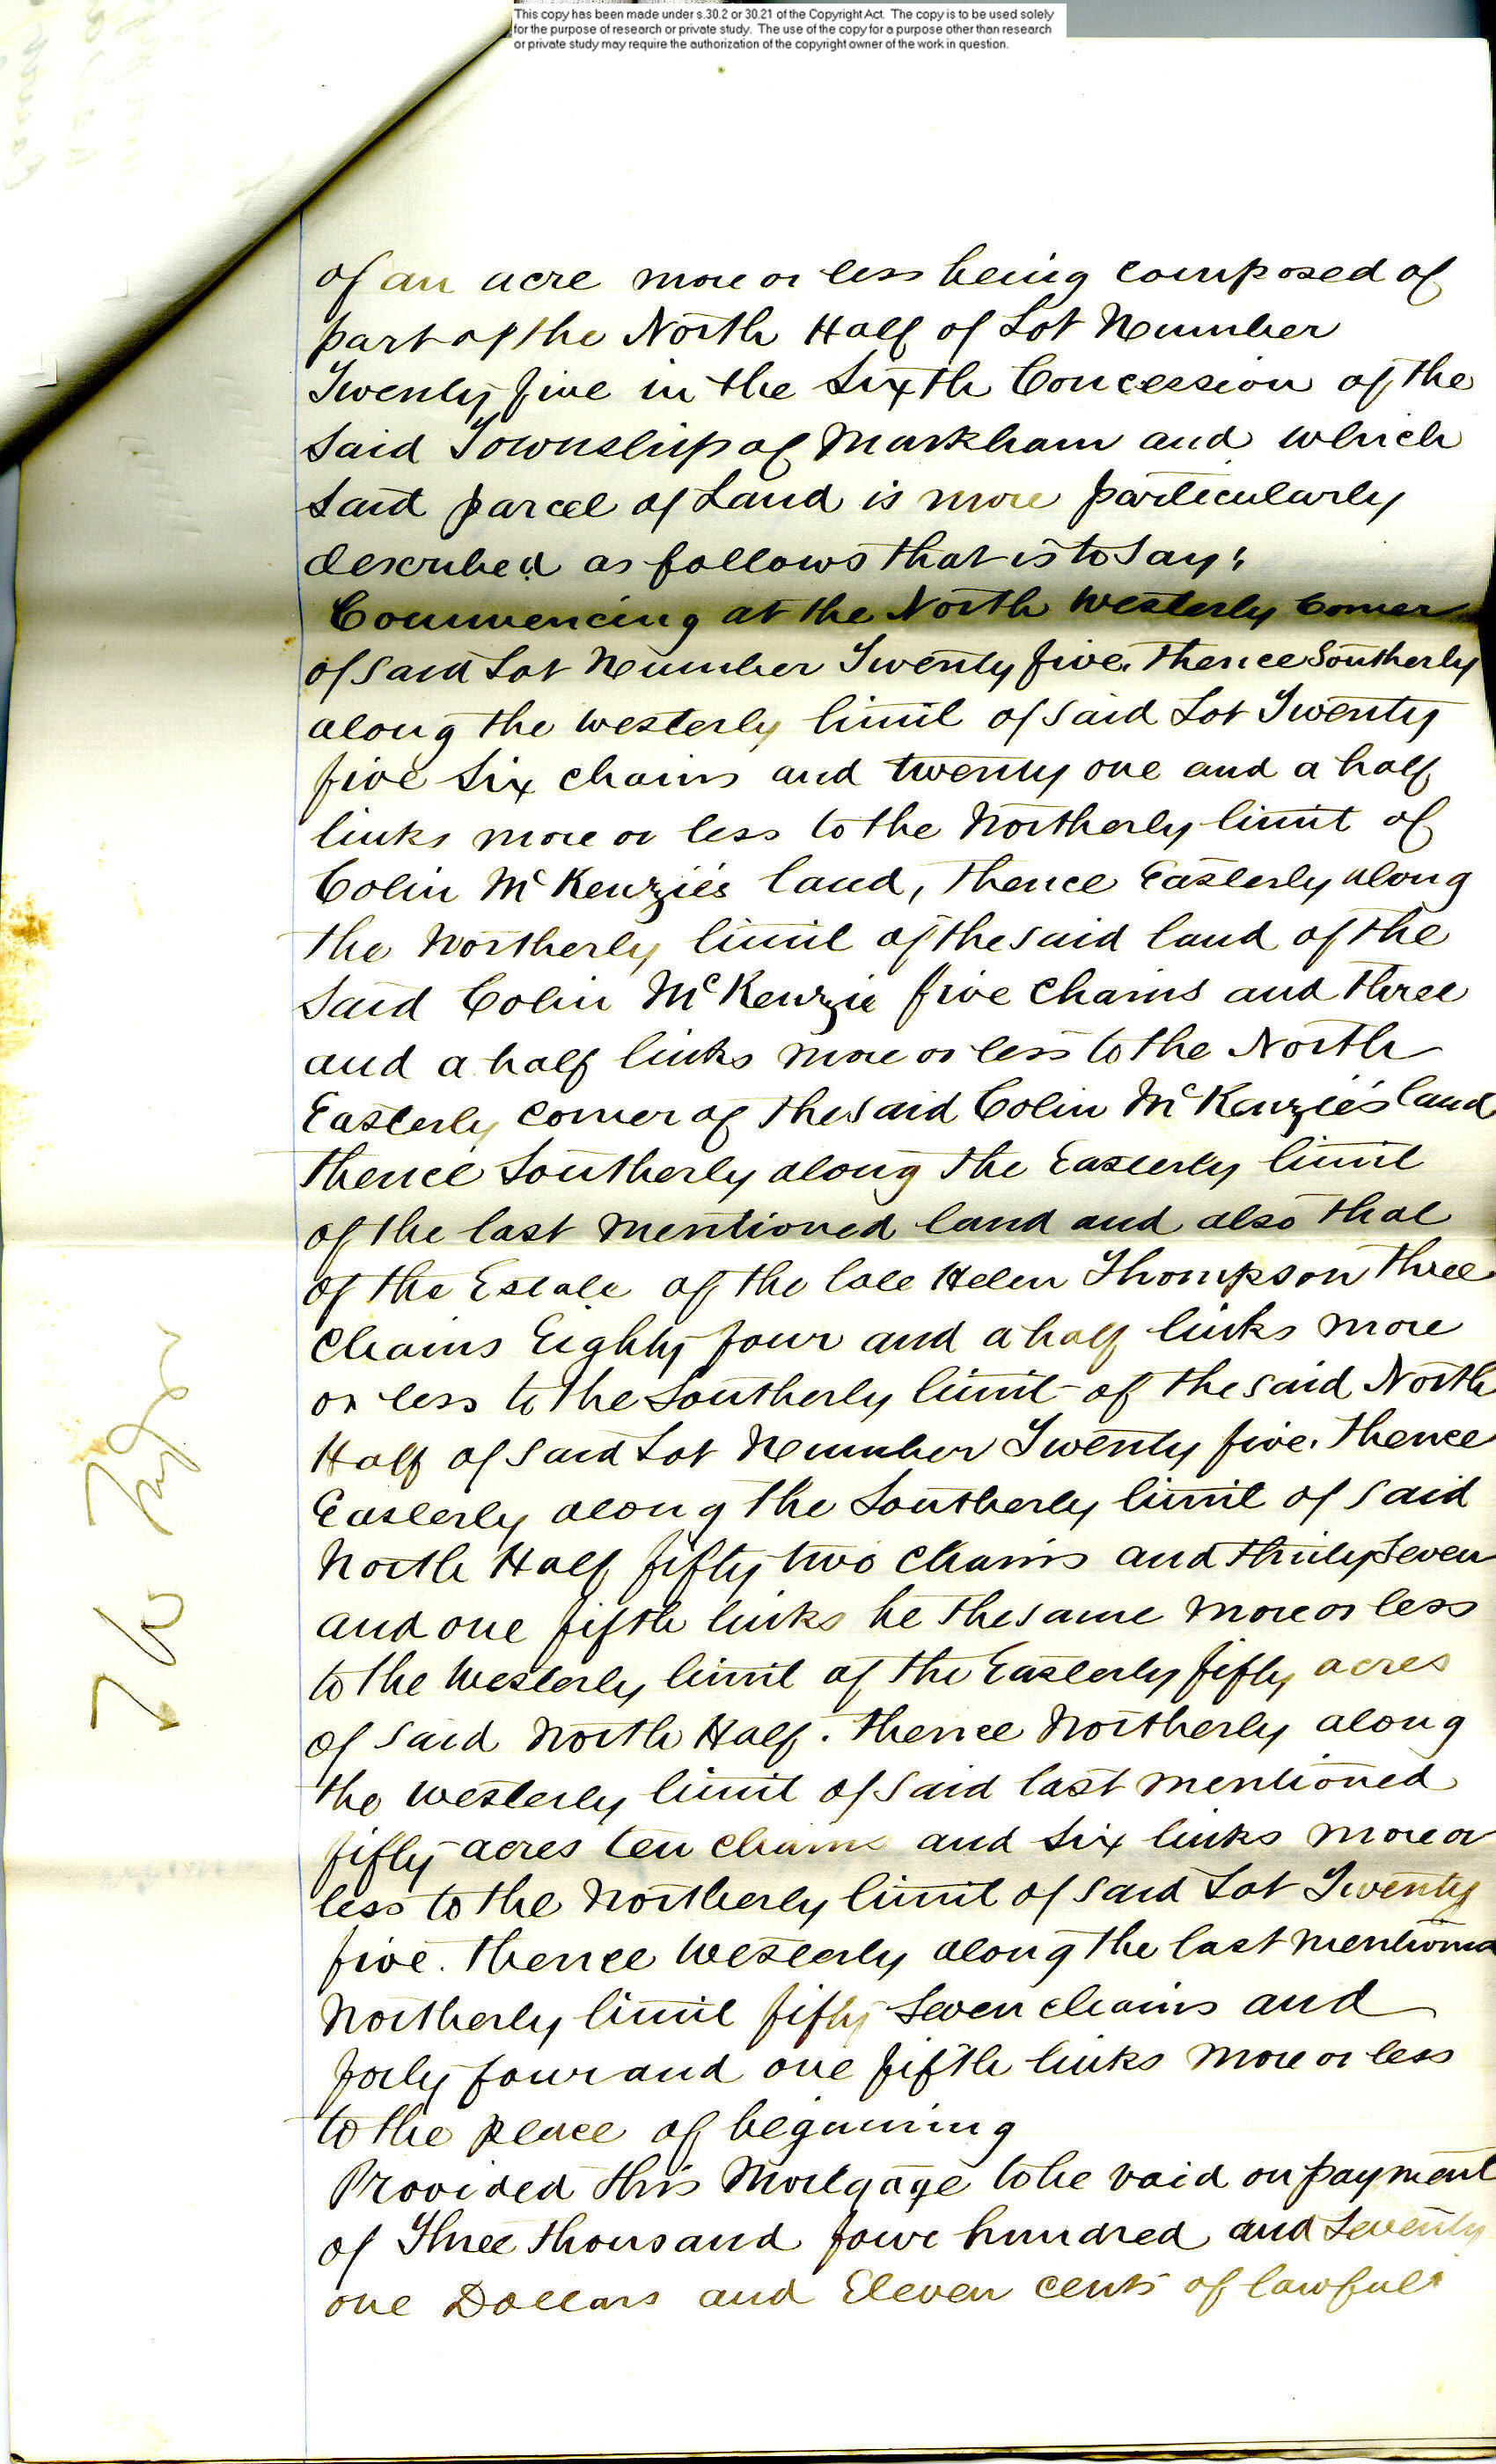 This copy has been made under s.30.2 or 30.21 of the Copyright Act. The copy is to be used solely
for the purpose of research or private study. The use of the copy for a purpose other than research
or private study may require the authorization of the copyright owner of the work in question.
of an acre more or less being composed of
part of the North Half of Lot Number
Twenty five in the Sixth Concession of the
Said Township of Markham and which
Said parcel of Land is more particularly
described as follows that is to say:
Commencing at the North Westerly Corner
of said Lot Number Twenty five. Thence Southerly
along the westerly limit of said Lot Twenty
five Six chains and twenty one and a half
links more or less to the Northerly limit of
Colin McKenzie's land, thence Easterly along
the Northerly limit of the said land of the
Said Colin McKenzie five Chains and three
and a half links more or less to the North
Easterly corner of the said Colin McKenzie's land
thence Southerly along the Easterly limit
of the last mentioned land and also that
of the Estate of the late Helen Thompson three
Chains Eighty four and a half links more
or less to the Southerly limit of the said North
Half of said Lot Number Twenty five. Thence
Easterly along the Southerly limit of said
North Half fifty two Chains and thirty Seven
and one fifth links be the same more or less
to the Westerly limit of the Easterly fifty acres
of said North Half. thence Northerly along
the westerly limit of said last mentioned
fifty acres ten chains and six links more or
less to the Northerly limit of said Lot Twenty
five. thence Westerly along the last mentioned
Northerly limit fifty Seven chains and
forty four and one fifth links more or less
to the place of beginning
Provided this Mortgage to be void on payment
of Three thousand four hundred and Seventy
one Dollars and Eleven cents of lawful